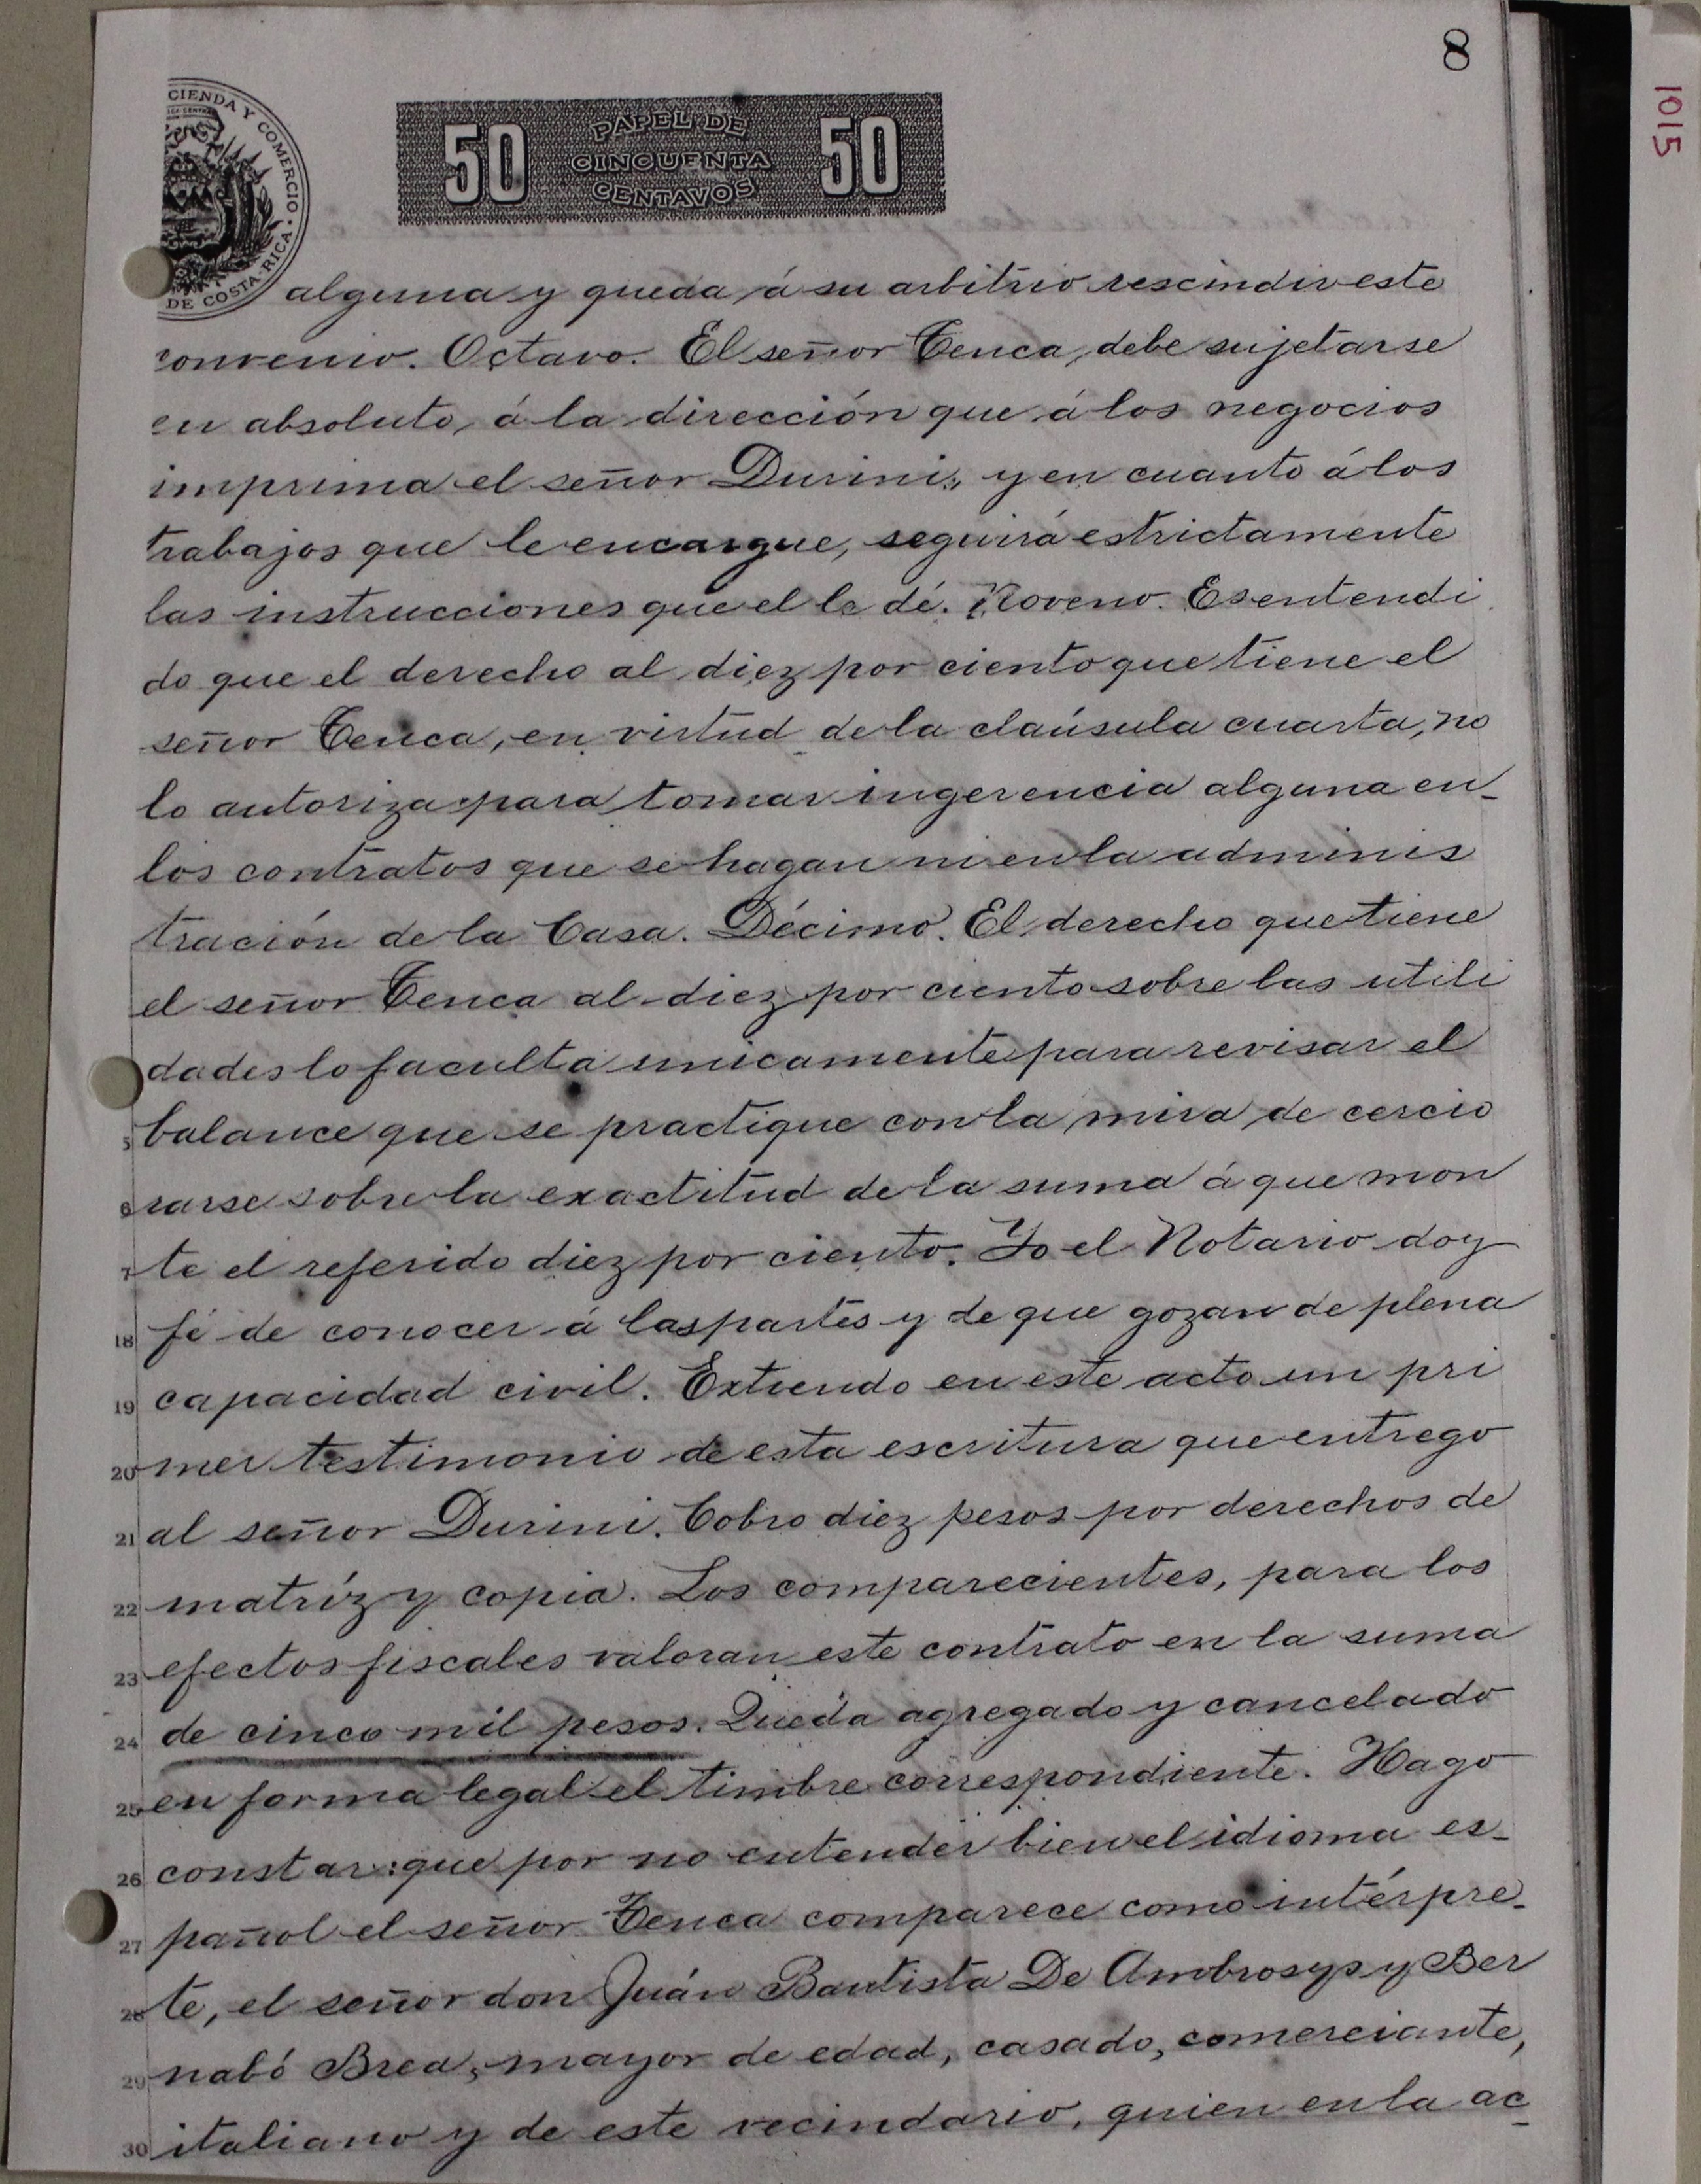 8
1015
CIENDA Y COMERCIO · DE COSTA·RICA·
50 PAPEL DE CINCUENTA CENTAVOS 50
alguna y queda á su arbitrio rescindir este
convenio. Octavo. El señor Tenca, debe sujetarse
en absoluto, á la dirección que á los negocios
imprima el señor Durini, y en cuanto á los
trabajos que le encargue, seguirá estrictamente
las instrucciones que el le dé. Noveno. Es entendi
do que el derecho al diez por ciento que tiene el
señor Tenca, en virtud de la claúsula cuarta, no
lo autoriza para tomar ingerencia alguna en-
los contratos que se hagan ni en la adminis
tración de la Casa. Décimo. El derecho que tiene
el señor Tenca al diez por ciento sobre las utili
dades lo faculta unicamente para revisar el
5 balance que se practique con la mira de cercio
6 rarse sobre la exactitud de la suma á que mon
7 te el referido diez por ciento. Yo el Notario doy
18 fé de conocer á las partes y de que gozan de plena
19 capacidad civil. Extiendo en este acto un pri
20 mer testimonio de esta escritura que entrego
21 al señor Durini. Cobro diez pesos por derechos de
22 matríz y copia. Los comparecientes, para los
23 efectos fiscales valoran este contrato en la suma
24 de cinco mil pesos. Queda agregado y cancelado
25 en forma legal el timbre correspondiente. Hago
26 constar: que por no entender bien el idioma es-
27 pañol el señor Tenca comparece como intérpre-
28 te, el señor don Juán Bautista De Ambrosys y Ber
29 nabó Brea, mayor de edad, casado, comerciante,
30 italiano y de este vecindario, quien en la ac-